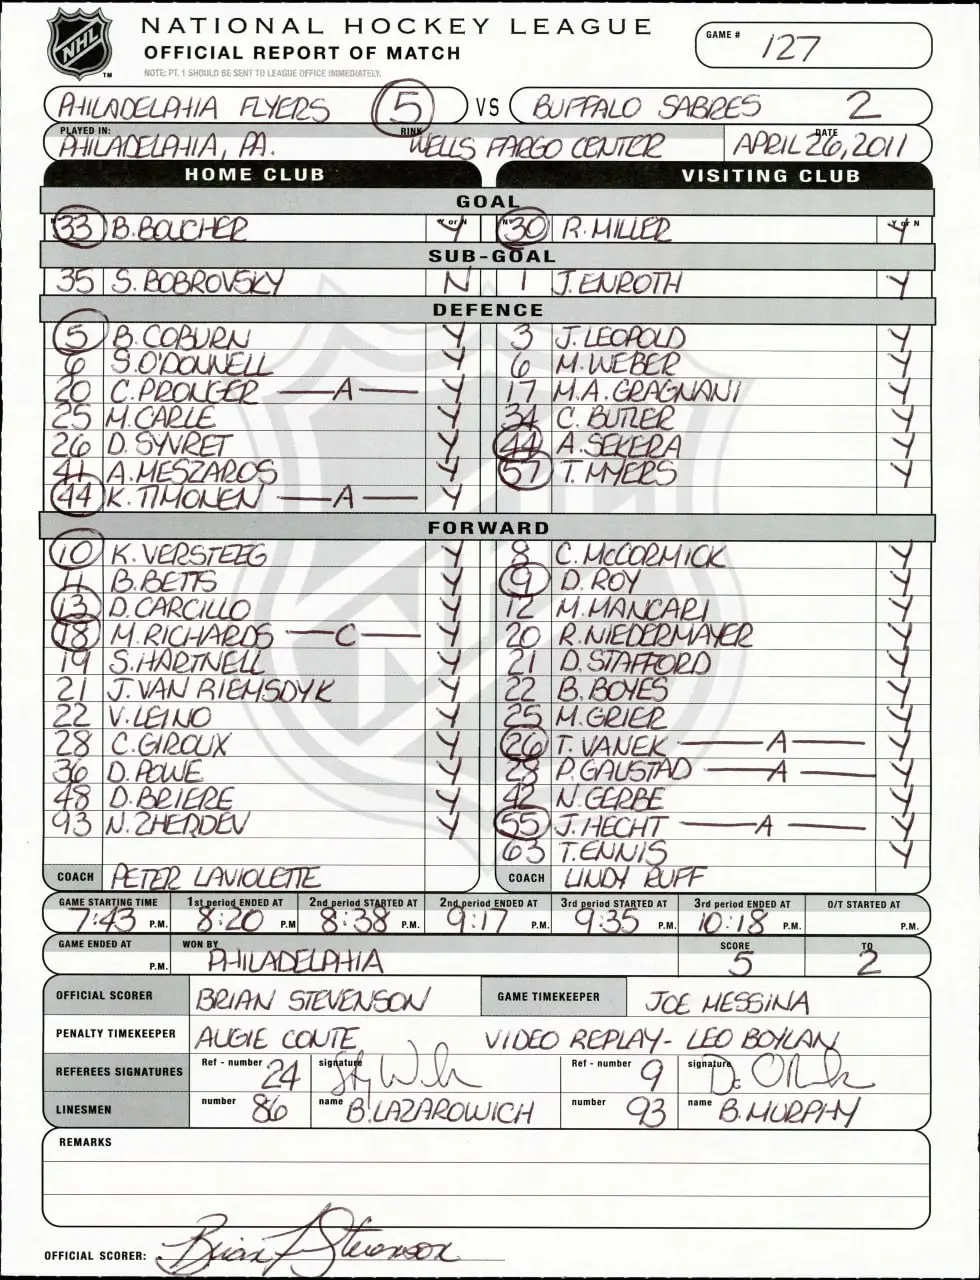 NHL
TM
NATIONAL HOCKEY LEAGUE
OFFICIAL REPORT OF MATCH
NOTE: PT. 1 SHOULD BE SENT TO LEAGUE OFFICE IMMEDIATELY.
GAME # 127
PHILADELPHIA FLYERS 5 VS BUFFALO SABRES 2
PLAYED IN: RINK DATE
PHILADELPHIA, PA. WELLS FARGO CENTER APRIL 26, 2011
HOME CLUB VISITING CLUB
GOAL
33 B. BOUCHER Y or N Y N° 30 R. MILLER Y or N Y
SUB-GOAL
35 S. BOBROVSKY N 1 J. ENROTH Y
DEFENCE
5 B. COBURN Y 3 J. LEOPOLD Y
6 S. O'DONNELL Y 6 M. WEBER Y
20 C. PRONGER — A — Y 17 M.A. GRAGNANI Y
25 M. CARLE Y 34 C. BUTLER Y
26 D. SYVRET Y 44 A. SEKERA Y
41 A. MESZAROS Y 57 T. MYERS Y
44 K. TIMONEN — A — Y
FORWARD
10 K. VERSTEEG Y 8 C. McCORMICK Y
11 B. BETTS Y 9 D. ROY Y
13 D. CARCILLO Y 12 M. MANCARI Y
18 M. RICHARDS — C — Y 20 R. NIEDERMAYER Y
19 S. HARTNELL Y 21 D. STAFFORD Y
21 J. VAN RIEMSDYK Y 22 B. BOYES Y
22 V. LEINO Y 25 M. GRIER Y
28 C. GIROUX Y 26 T. VANEK — A — Y
36 D. POWE Y 28 P. GAUSTAD — A — Y
48 D. BRIERE Y 42 N. GERBE Y
93 N. ZHERDEV Y 55 J. HECHT — A — Y
63 T. ENNIS Y
COACH PETER LAVIOLETTE COACH LINDY RUFF
GAME STARTING TIME 1st period ENDED AT 2nd period STARTED AT 2nd period ENDED AT 3rd period STARTED AT 3rd period ENDED AT O/T STARTED AT
7:43 P.M. 8:20 P.M 8:38 P.M. 9:17 P.M. 9:35 P.M. 10:18 P.M. P.M.
GAME ENDED AT WON BY SCORE TO
P.M. PHILADELPHIA 5 2
OFFICIAL SCORER BRIAN STEVENSON GAME TIMEKEEPER JOE MESSINA
PENALTY TIMEKEEPER AUGIE CONTE VIDEO REPLAY- LEO BOYLAN
REFEREES SIGNATURES Ref - number 24 signature Ref - number 9 signature
LINESMEN number 86 name B. LAZAROWICH number 93 name B. MURPHY
REMARKS
OFFICIAL SCORER: Brian F Stevenson